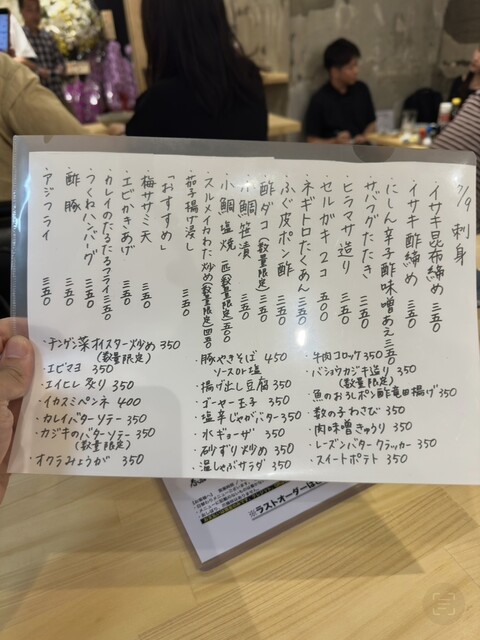 7/9 刺身
・イサキ昆布締め 三五〇
・イサキ酢締め 三五〇
・にしん辛子酢味噌あえ 三五〇
・サバフグたたき 三五〇
・ヒラマサ造り 三五〇
・セルガキ2コ 三五〇
・ネギトロたくあん 三五〇
・ふぐ皮ポン酢 三五〇
・酢ダコ(数量限定) 三五〇
・小鯛笹漬 三五〇
・小鯛塩焼一匹(数量限定) 五〇〇
・スルメイカわた炒め(数量限定) 四五〇
・茄子揚げ浸し 三五〇
「おすすめ」
・梅ササミ天 三五〇
・エビかきあげ 三五〇
・カレイのだるだるフライ 三五〇
・つくねハンバーグ 三五〇
・酢豚 三五〇
・アジフライ 三五〇
・チンゲン菜オイスター炒め 350
(数量限定)
・エビマヨ 350
・エイヒレ炙り 350
・イカスミペンネ 400
・カレイバターソテー 350
・カジキのバターソテー 350
(数量限定)
・オクラみょうが 350
・豚やきそば 450
ソースor塩
・揚げ出し豆腐 350
・ゴーヤー玉子 350
・塩辛じゃがバター 350
・水ギョーザ 350
・砂ずり炒め 350
・温しゃぶサラダ 350
・牛肉コロッケ 350
・バショウカジキ造り 350
(数量限定)
・魚のおろしポン酢竜田揚げ 350
・数の子わさび 350
・肉味噌きゅうり 350
・レーズンバタークラッカー 350
・スイートポテト 350
※ラストオーダーは